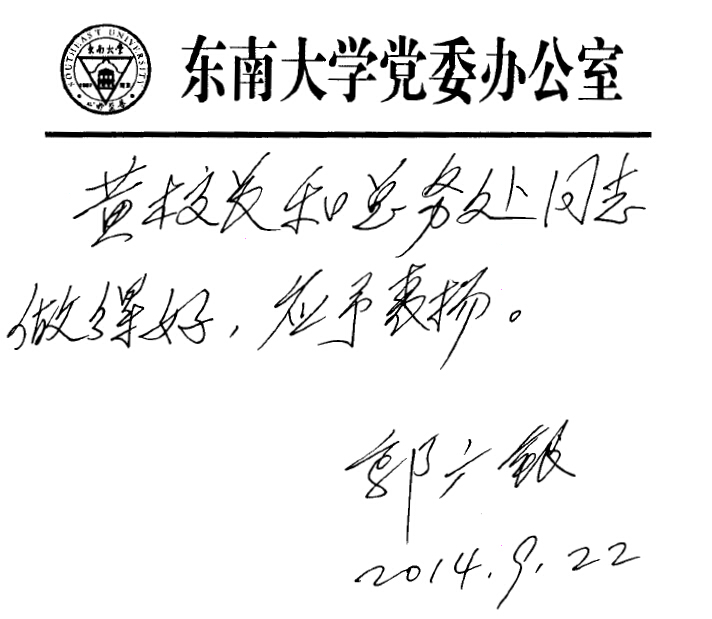 SOUTHEAST UNIVERSITY
东南大学
东南大学党委办公室
黄校长和总务处同志
做得好，应予表扬。
郭广银
2014.9.22